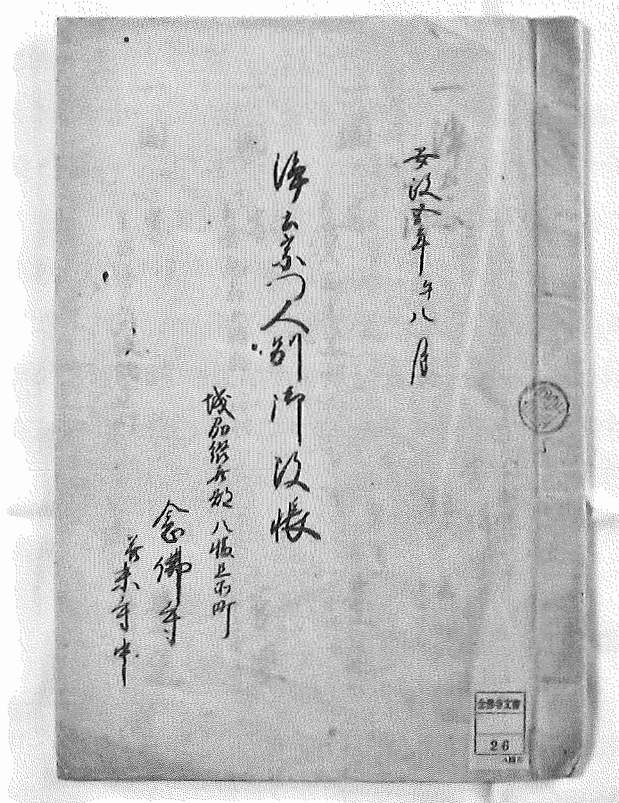 安政五年午八月
浄土宗門人別御改帳
城州綴喜郡八幡旦所町
念佛寺
并末寺中
念佛寺文書
26